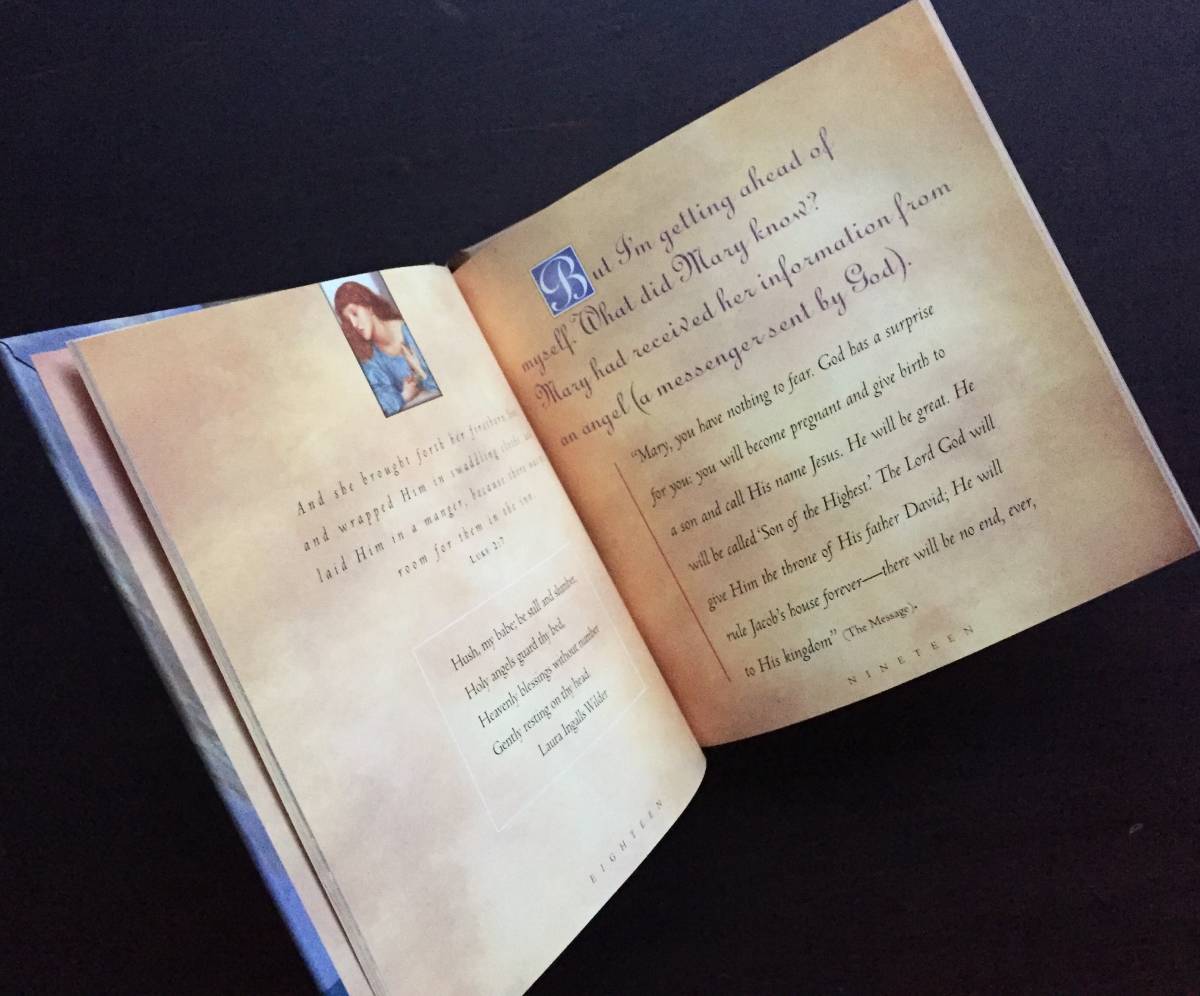 And she brought forth her firstborn
and wrapped Him in swaddling cloths
laid Him in a manger, because there was
room for them in the inn.
Luke 2:7
Hush, my babe; be still and slumber,
Holy angels guard thy bed.
Heavenly blessings without number
Gently resting on thy head.
Laura Ingalls Wilder
EIGHTEEN
But I'm getting ahead of
myself. What did Mary know?
Mary had received her information from
an angel (a messenger sent by God).
"Mary, you have nothing to fear. God has a surprise
for you: you will become pregnant and give birth to
a son and call His name Jesus. He will be great. He
will be called 'Son of the Highest.' The Lord God will
give Him the throne of His father David; He will
rule Jacob's house forever—there will be no end, ever,
to His kingdom" (The Message).
NINETEEN